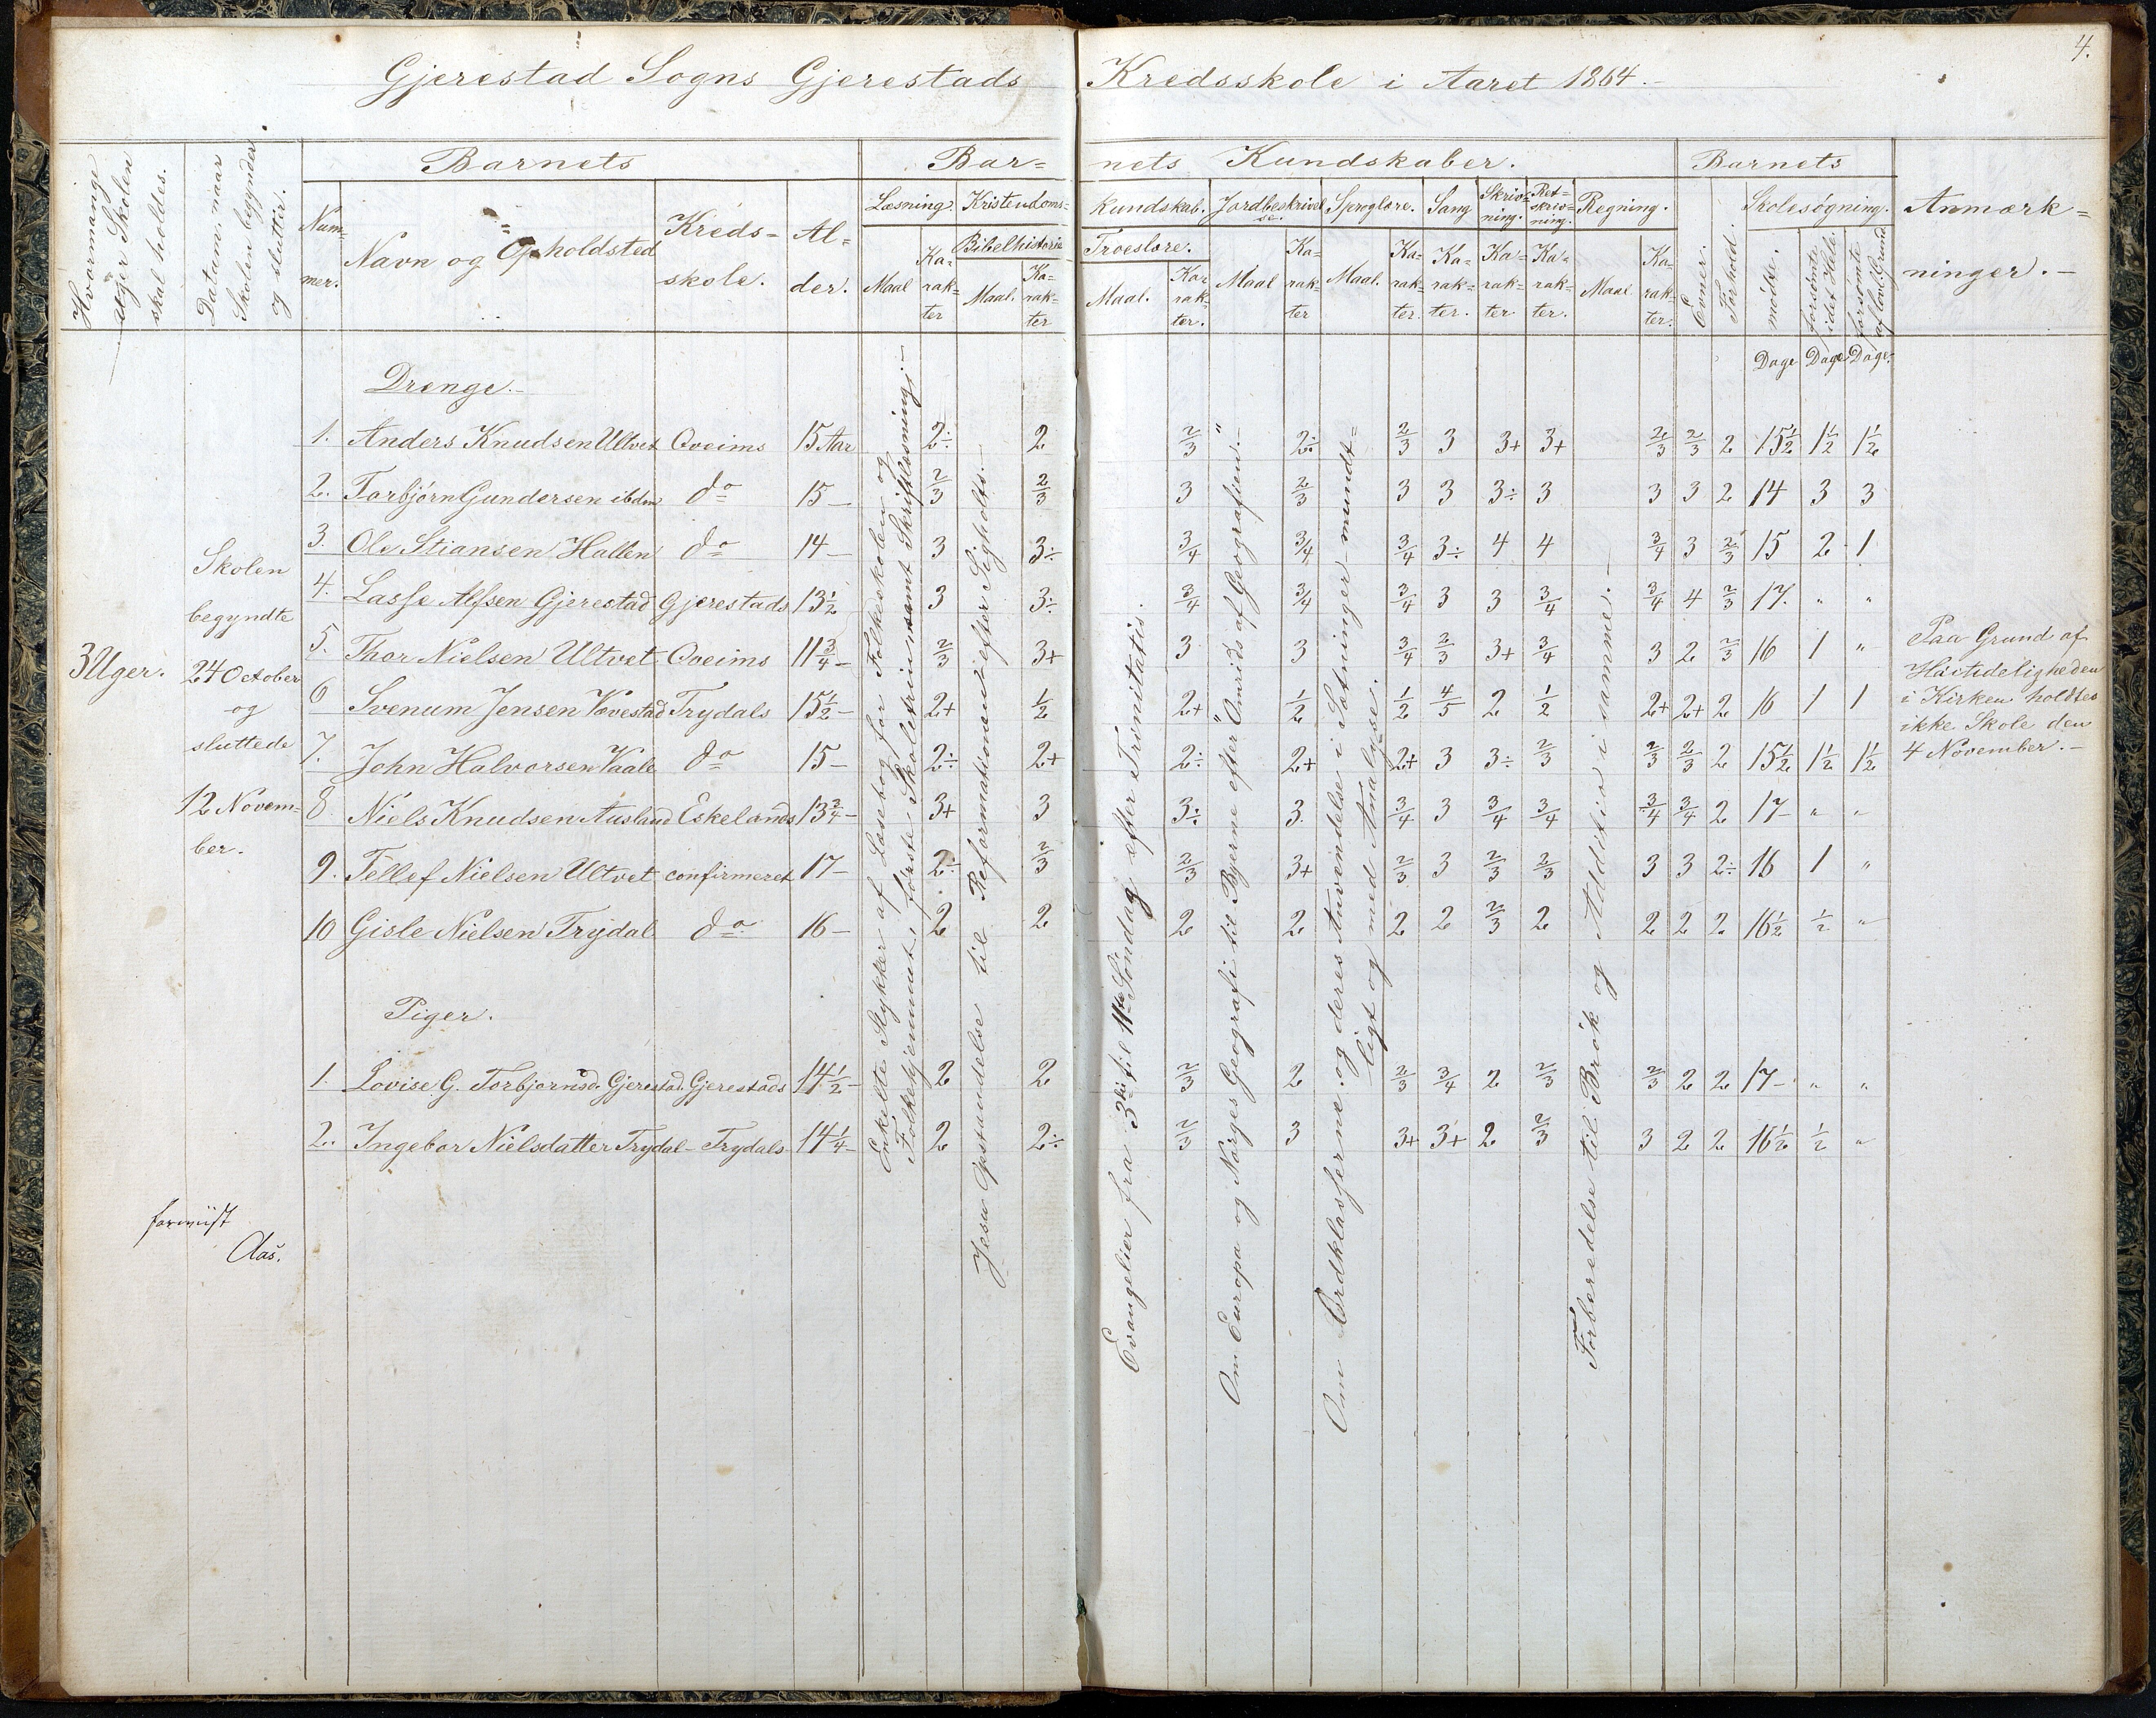 4.
Gjerestad Sogns Gjerestads Kredsskole i Aaret 1864.-
Hvormange Uger Skolen skal holdes.
Datum, naar Skolen begynder og slutter.
Barnets
Nummer.
Navn og Opholdsted
Kreds=skole.
Al=der.
Bar=nets Kundskaber.
Læsning.
Maal
Ka=rak=ter
Kristendoms=kundskab.
Bibelhistorie
Maal.
Ka=rak=ter
Troeslære.
Maal.
Ka=rak=ter.
Jordbeskrivelse.
Maal
Ka=rak=ter
Sproglære.
Maal.
Ka=rak=ter.
Sang
Ka=rak=ter.
Skriv=ning.
Ka=rak=ter
Ret=skriv=ning.
Ka=rak=ter.
Regning.
Maal
Ka=rak=ter.
Barnets
Evner.
Forhold.
Skolesøgning.
mødte.
forsømte i det Hele.
forsømte af lovl. Grund
Dage Dage Dage.
Anmærk=ninger.-
3 Uger.
Skolen
begyndte
24 October
og
sluttede
12 Novem=
ber.
Drenge.-
1. Anders Knudsen Ultvet Oveims 15 Aar 2÷ 2 2/3 2÷ 2/3 3 3+ 3+ 2/3 2/3 2 15½ 1½ 1½
2. Torbjørn Gundersen ibdm do 15- 2/3 2/3 3 2/3 3 3 3÷ 3 3 3 2 14 3 3
3. Ole Stiansen Hallen do 14- 3 3÷ 3/4 3/4 3/4 3÷ 4 4 3/4 3 2/3 15 2 1
4. Lasse Alfsen Gjerestad Gjerestads 13½ 3 3÷ 3/4 3/4 3/4 3 3 3/4 3/4 4 2/3 17. " "
5. Thor Nielsen Ultvet Oveims 11¾- 2/3 3+ 3 3 3/4 2/3 3+ 3/4 3 2 2/3 16 1 "
6 Svenum Jensen Vævestad Trydals 15½- 2+ 1/2 2+ 1/2 1/2 4/5 2 1/2 2+ 2+ 2 16 1 1
7. John Halvorsen Vaale do 15- 2÷ 2+ 2÷ 2+ 2+ 3 3÷ 2/3 2/3 2/3 2 15½ 1½ 1½
8. Niels Knudsen Ausland Eskelands 13¾- 3+ 3 3÷ 3. 3/4 3 3/4 3/4 3/4 3/4 2 17- " "
9. Tellef Nielsen Ultvet confirmeret 17- 2÷ 2/3 2/3 3+ 2/3 3 2/3 2/3 3 3 2÷ 16 1 "
10 Gisle Nielsen Trydal do 16- 2 2 2 2 2 2 2/3 2 2 2 2 16½ ½ "
Piger.
1. Lovise G. Torbjornsd. Gjerestad. Gjerestads 14½- 2 2 2/3 2 2/3 3/4 2 2/3 2/3 2 2 17- " "
2. Ingebor Nielsdatter Trydal- Trydals- 14¼- 2 2÷ 2/3 3 3+ 3+ 2 2/3 3 2 2 16½ ½ "
Enkelte Stykker af Læsebog for Folkeskolen og
Folkehjemmet, første Skoletrin samt Skriftlæsning.-
Jesu Opstandelse til Reformationen efter Sigholts.-
Evangelier fra 3die til 11te Søndag efter Trinitatis.
Om Europa og Norges Geografi til Byerne efter "Omrids af Geografien".-
Om Ordklasserne og deres Anvendelse i Sætninger - mundt=
ligt og med Analyse.
Forberedelse til Brøk og Addition i samme.-
Paa Grund af
Høitideligheden
i Kirken holdtes
ikke Skole den
4 November.-
Aas.